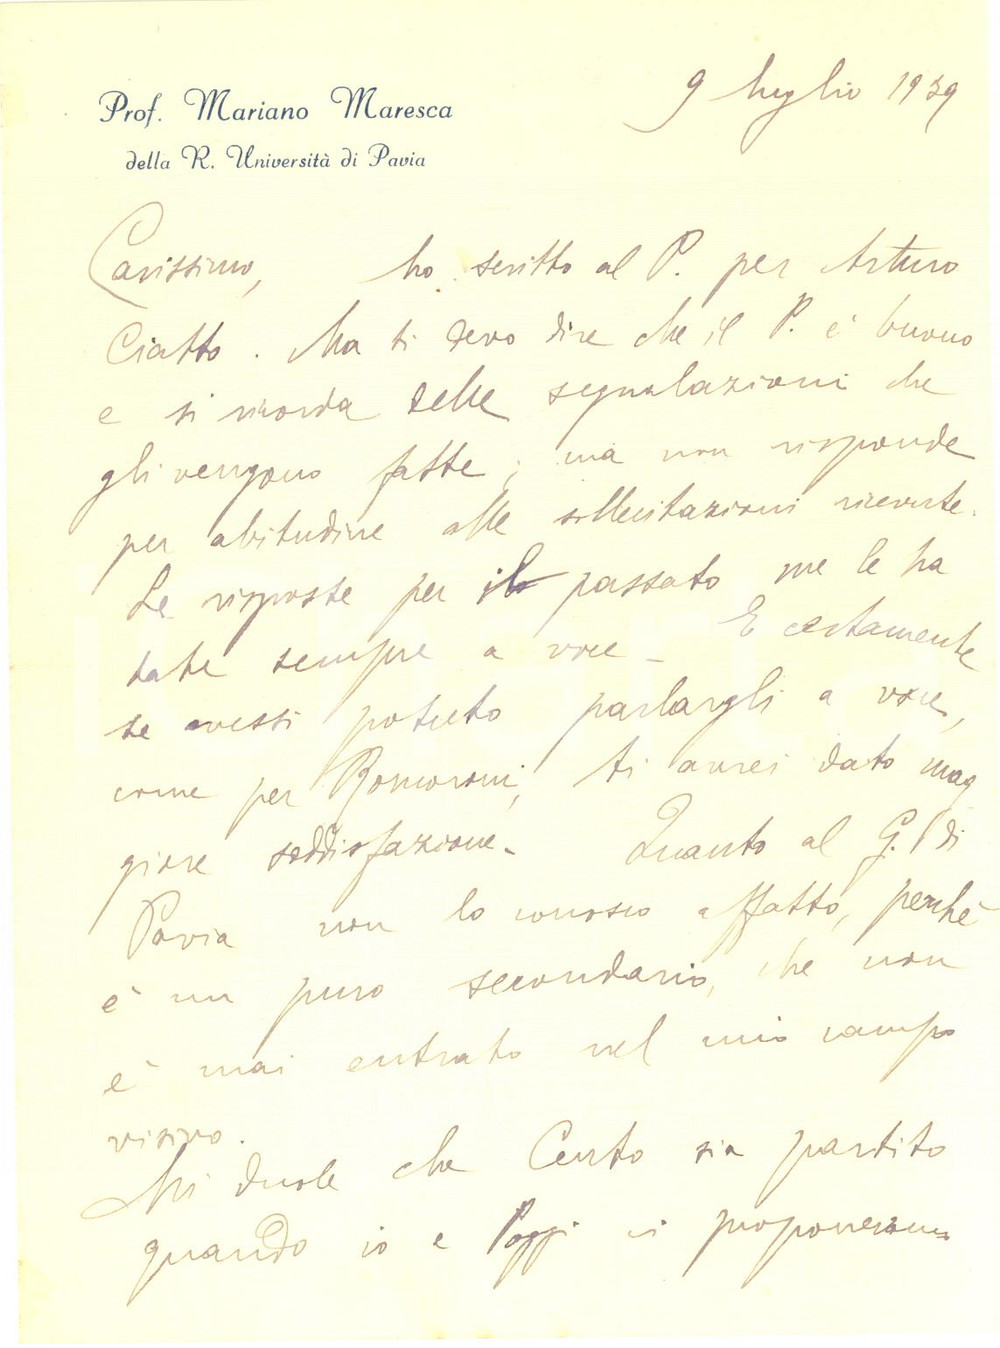 Prof. Mariano Maresca
della R. Università di Pavia
9 luglio 1939
Carissimo, ho scritto al P. per Arturo
Ciatto. Ma ti devo dire che il P. è buono
e si ricorda delle segnalazioni che
gli vengono fatte; ma non risponde
per abitudine alle sollecitazioni ricevute.
Le risposte per il passato me le ha
date sempre a voce - E certamente
se avessi potuto parlargli a voce,
come per ti avrei dato mag
giore soddisfazione - Quanto al G. di
Pavia non lo conosco affatto, perchè
è un puro secondario, che non
è mai entrato nel mio campo
visivo.
Mi duole che Cento sia partito
quando io e Poggi ci proponevamo